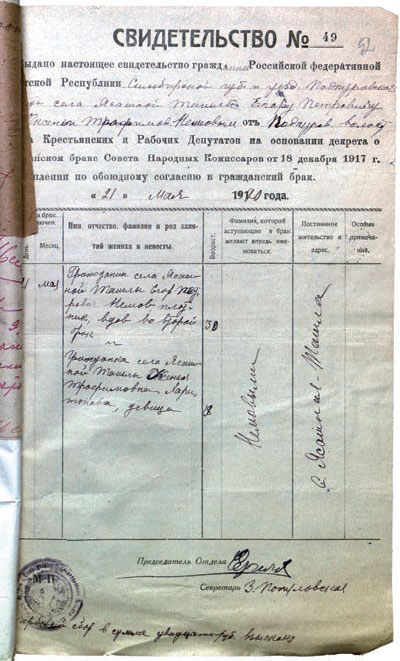 СВИДЕТЕЛЬСТВО № 49
52
ыдано настоящее свидетельство гражданам Российской федератівной
тской Республики Симбирской губ и уезд
села Ясашной Ташлы Егору Петровичу
Немовым от волост
а Крестьянских и Рабочих Депутатов на основании декрета о
анском браке Совета Народных Комиссаров от 18 декабря 1917 г.
плении по обоюдному согласию в гражданский брак.
« 21 » мая 1920 года.
брак.
Месяц.
Имя, отчество, фамилия и род заня-
тий жениха и невесты.
Возраст.
Фамилия, которой
вступающие в брак
желают впредь име-
новаться.
Постоянное
жительство и
адрес.
Особые
примеча-
ния.
май
Гражданин села Ясаш-
ной Ташлы Егор Пет-
рович Немов плот-
ник, вдов во второй
брак
30
и
Гражданка села Ясаш-
ной Ташлы Ксения
Трофимовна Хари-
тонова, девица
18
Немовыми
с. Ясашная-Ташла
Председатель Отдела
Секретарь З.
сбор в сумме двадцати руб взыскано
М.П.